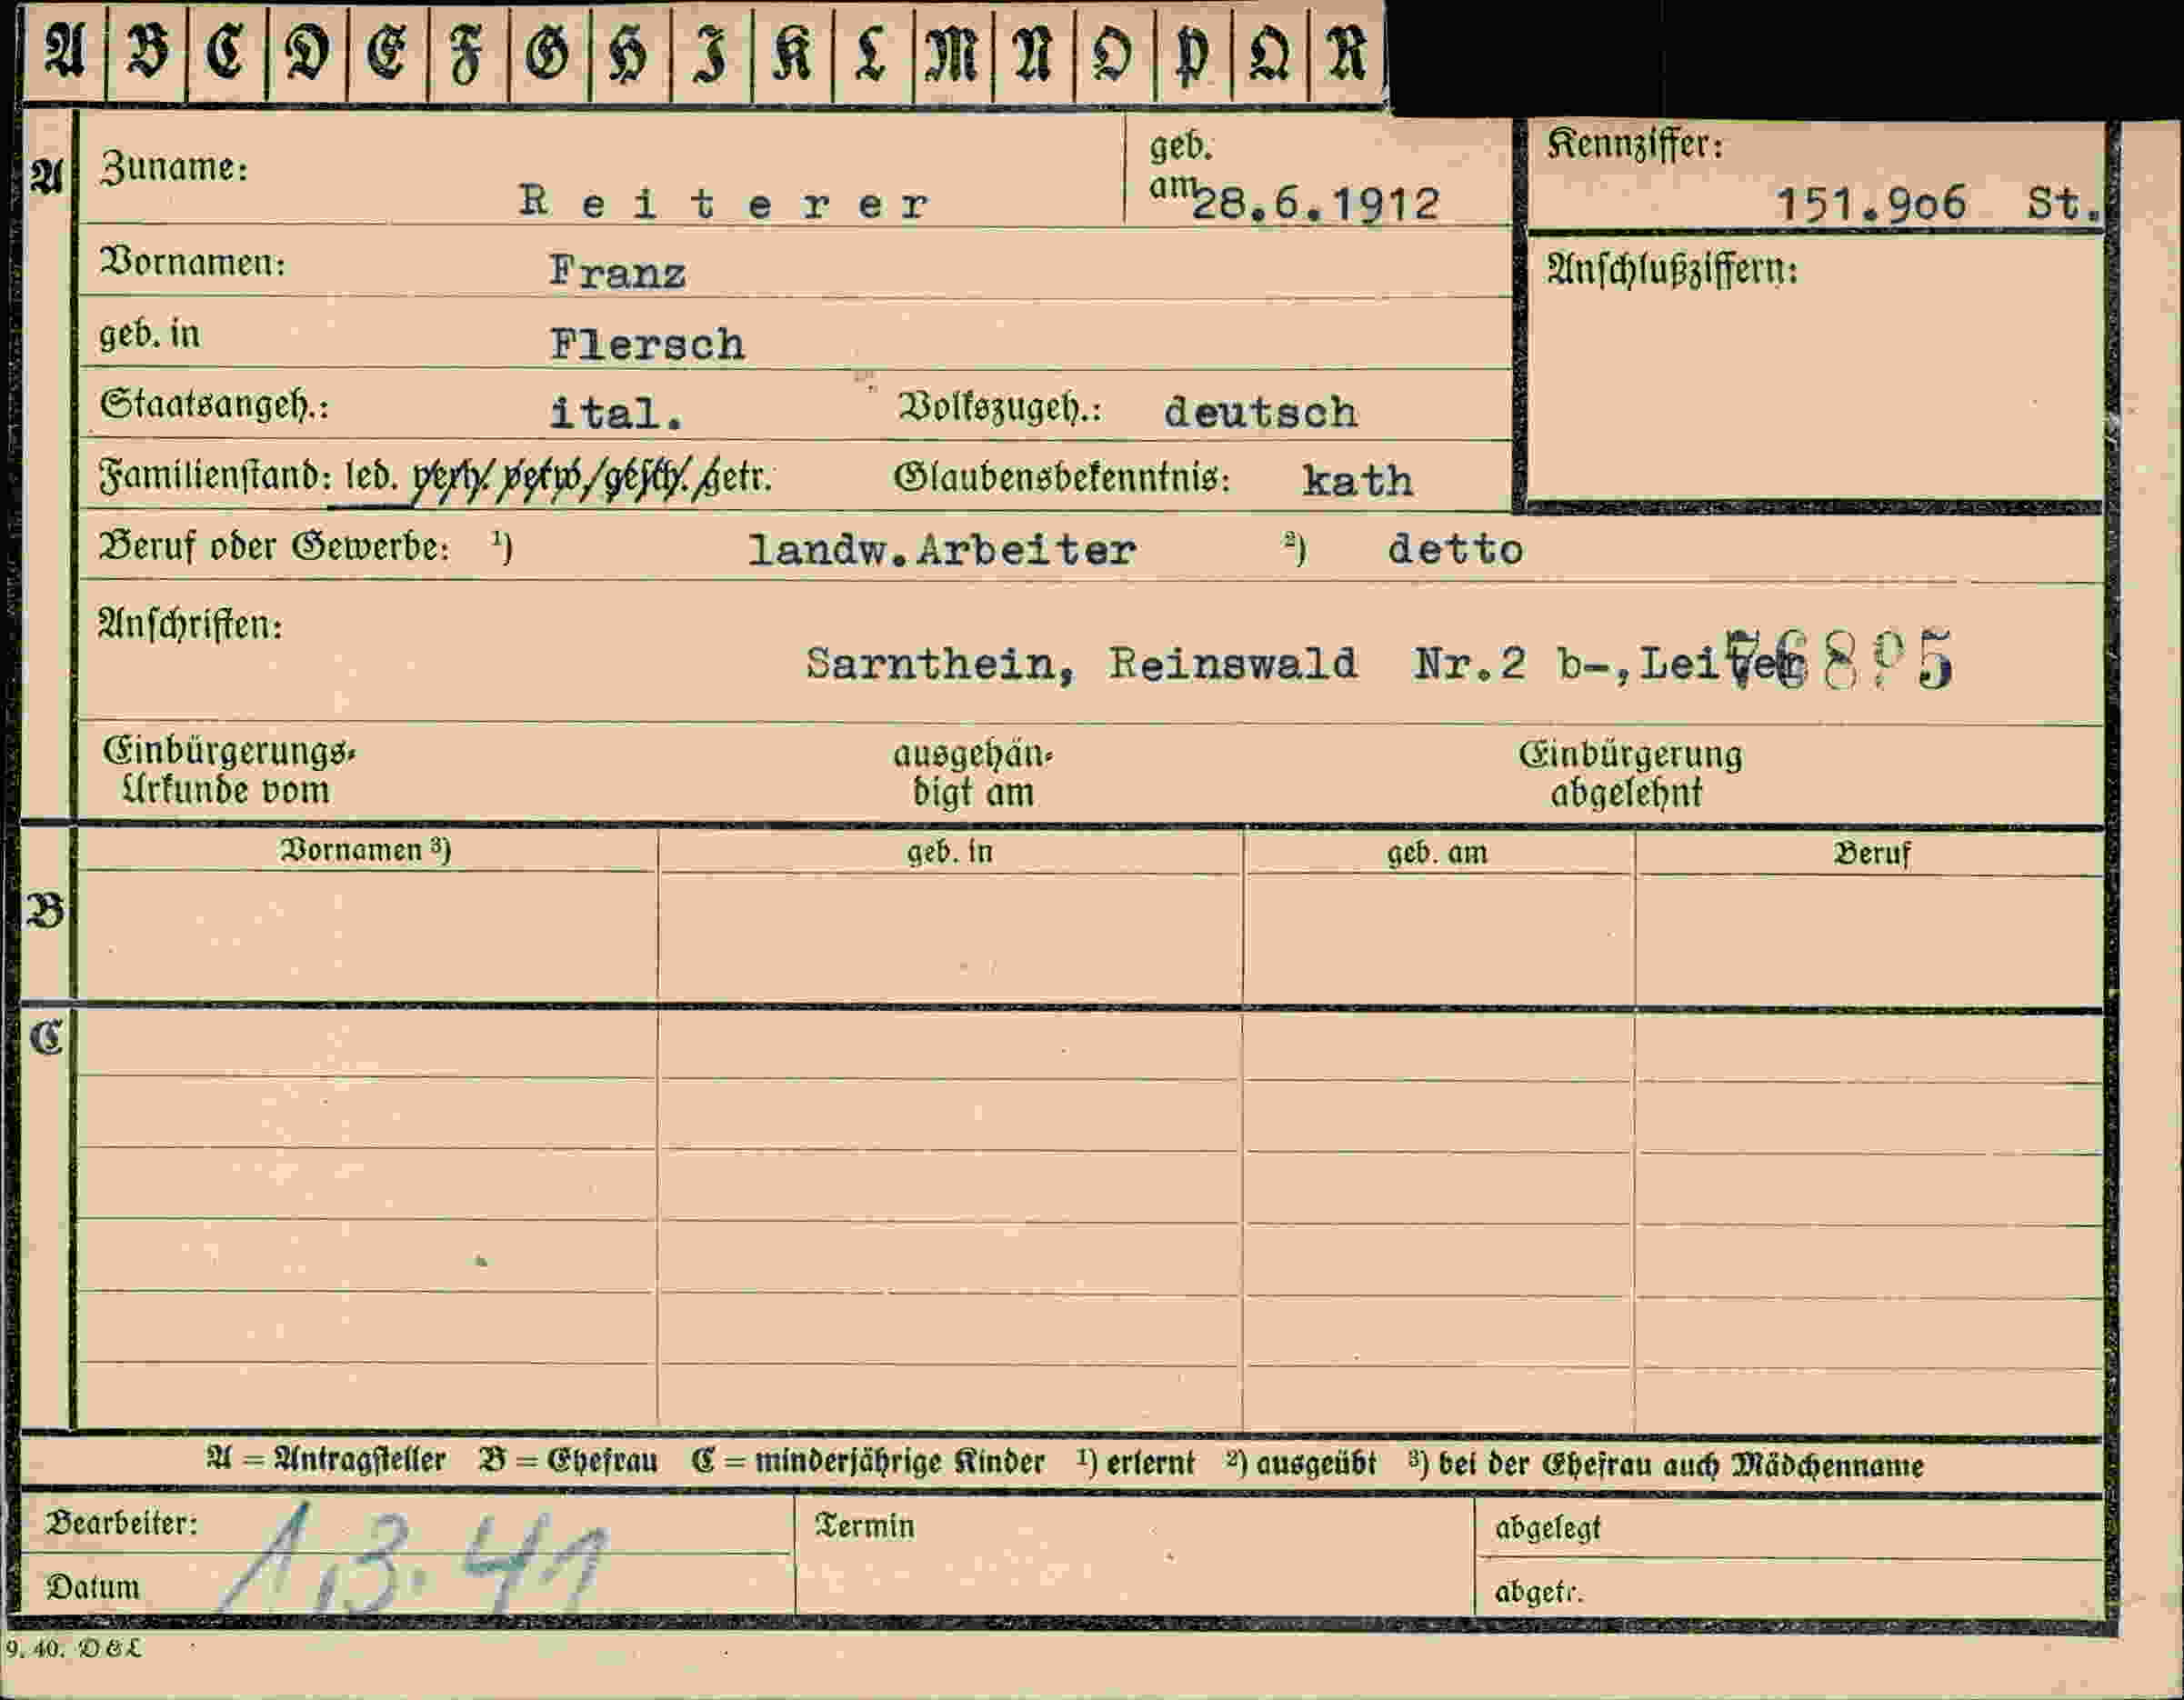 A B C D E F G H I K L M N O P Q R
A Zuname: Reiterer geb. am 28.6.1912
Kennziffer: 151.9o6 St.
Vornamen: Franz
Anschlußziffern:
geb. in Flersch
Staatsangeh.: ital. Volkszugeh.: deutsch
Familienstand: led. verh. verw. gesch. getr. Glaubensbekenntnis: kath
Beruf oder Gewerbe: ¹) landw.Arbeiter ²) detto
Anschriften:
Sarnthein, Reinswald Nr.2 b-,
Einbürgerungs-Urkunde vom ausgehändigt am Einbürgerung abgelehnt
Vornamen ³) geb. in geb. am Beruf
B
C
A = Antragsteller B = Ehefrau C = minderjährige Kinder ¹) erlernt ²) ausgeübt ³) bei der Ehefrau auch Mädchenname
Bearbeiter: Termin abgelegt
1.3.41
Datum abgetr.
9. 40. D&L